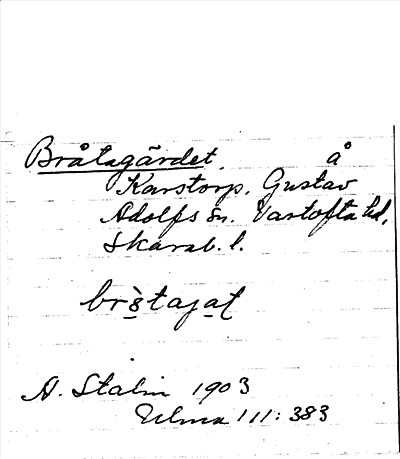 Bråtagärdet. å
Karstorp. Gustav
Adolfs sn. Vartofta hd.
Skarab. l.
A. Stalin 1903
Ulma 111: 383